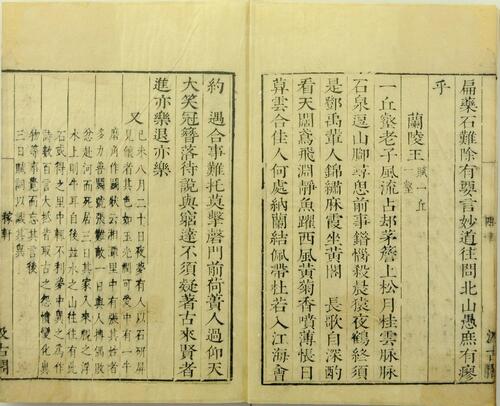 扁藥石難除有要言妙道往問北山愚庶有瘳
乎
蘭陵王 賦一丘一壑
一丘壑老子風流占却茅簷上松月桂雲脉脉
石泉逗山脚尋思前事錯惱殺晨猿夜鶴終須
是鄧禹輩人錦繡麻霞坐黃閣 長歌自深酌
看天闊鳶飛淵靜魚躍西風黃菊香噴薄悵日
暮雲合佳人何處納蘭結佩帶杜若入江海會
約 遇合事難托莫擊磬門前荷蕢人過仰天
大笑冠簪落待說與窮達不須疑著古來賢者
進亦樂退亦樂
又 己未八月二十日夜夢有人以石硏屏
見餉者其色如玉光潤可愛中有一牛
磨角作鬪狀云湘潭里中有張其姓者
多力善鬪號張難敵一日與人摶偶敗
忿赴河而死居三日其家人來視之浮
水上則牛耳自後並水之山徃徃有此
石或得之里中輒不利夢中異之爲作
詩數百言大抵皆取古之怨憤變化異
物等事覺而忘其言後
三日賦詞以識其異
稼軒
汲古閣